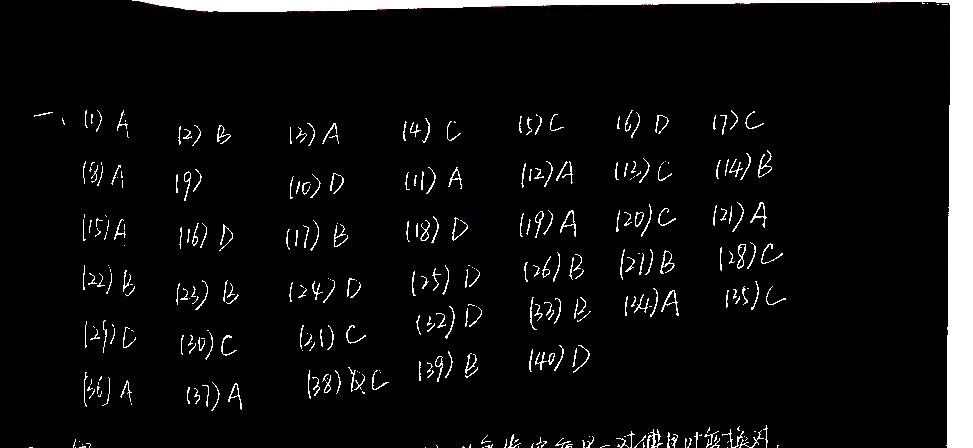 一、(1) A (2) B (3) A (4) C (5) C (6) D (7) C
(8) A (9) (10) D (11) A (12) A (13) C (14) B
(15) A (16) D (17) B (18) D (19) A (20) C (21) A
(22) B (23) B (24) D (25) D (26) B (27) B (28) C
(29) D (30) C (31) C (32) D (33) B (34) A (35) C
(36) A (37) A (38) C (39) B (40) D